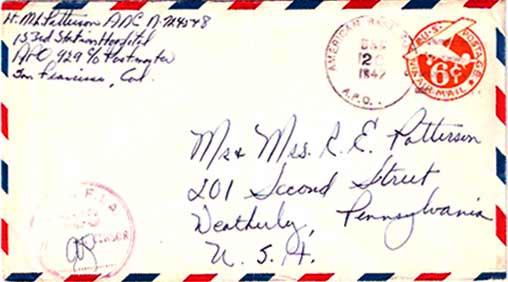 Lt. M. L. Patterson A.N.C. N-724528
153rd Station Hospital
APO 929 c/o Postmaster
San Francisco, Cal.
AMERICAN BASE
DEC
1942
A.P.O.
U.S. POSTAGE
6¢
VIA AIR MAIL
Mr & Mrs. R. E. Patterson
201 Second Street
Weatherly, Pennsylvania
U. S. A.